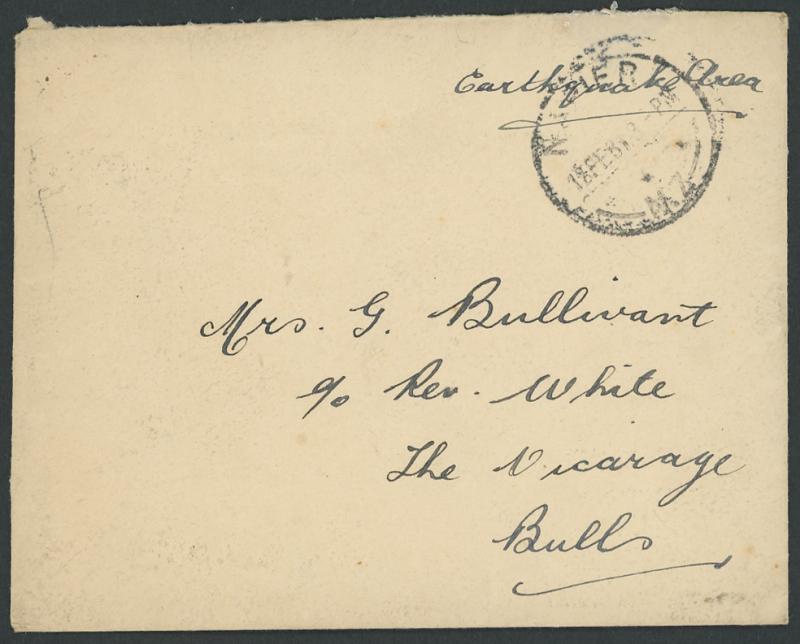 Earthquake Area
NAPIER
18FE31 3-PM
N.Z
Mrs. G. Bullivant
c/o Rev. White
The Vicarage
Bulls